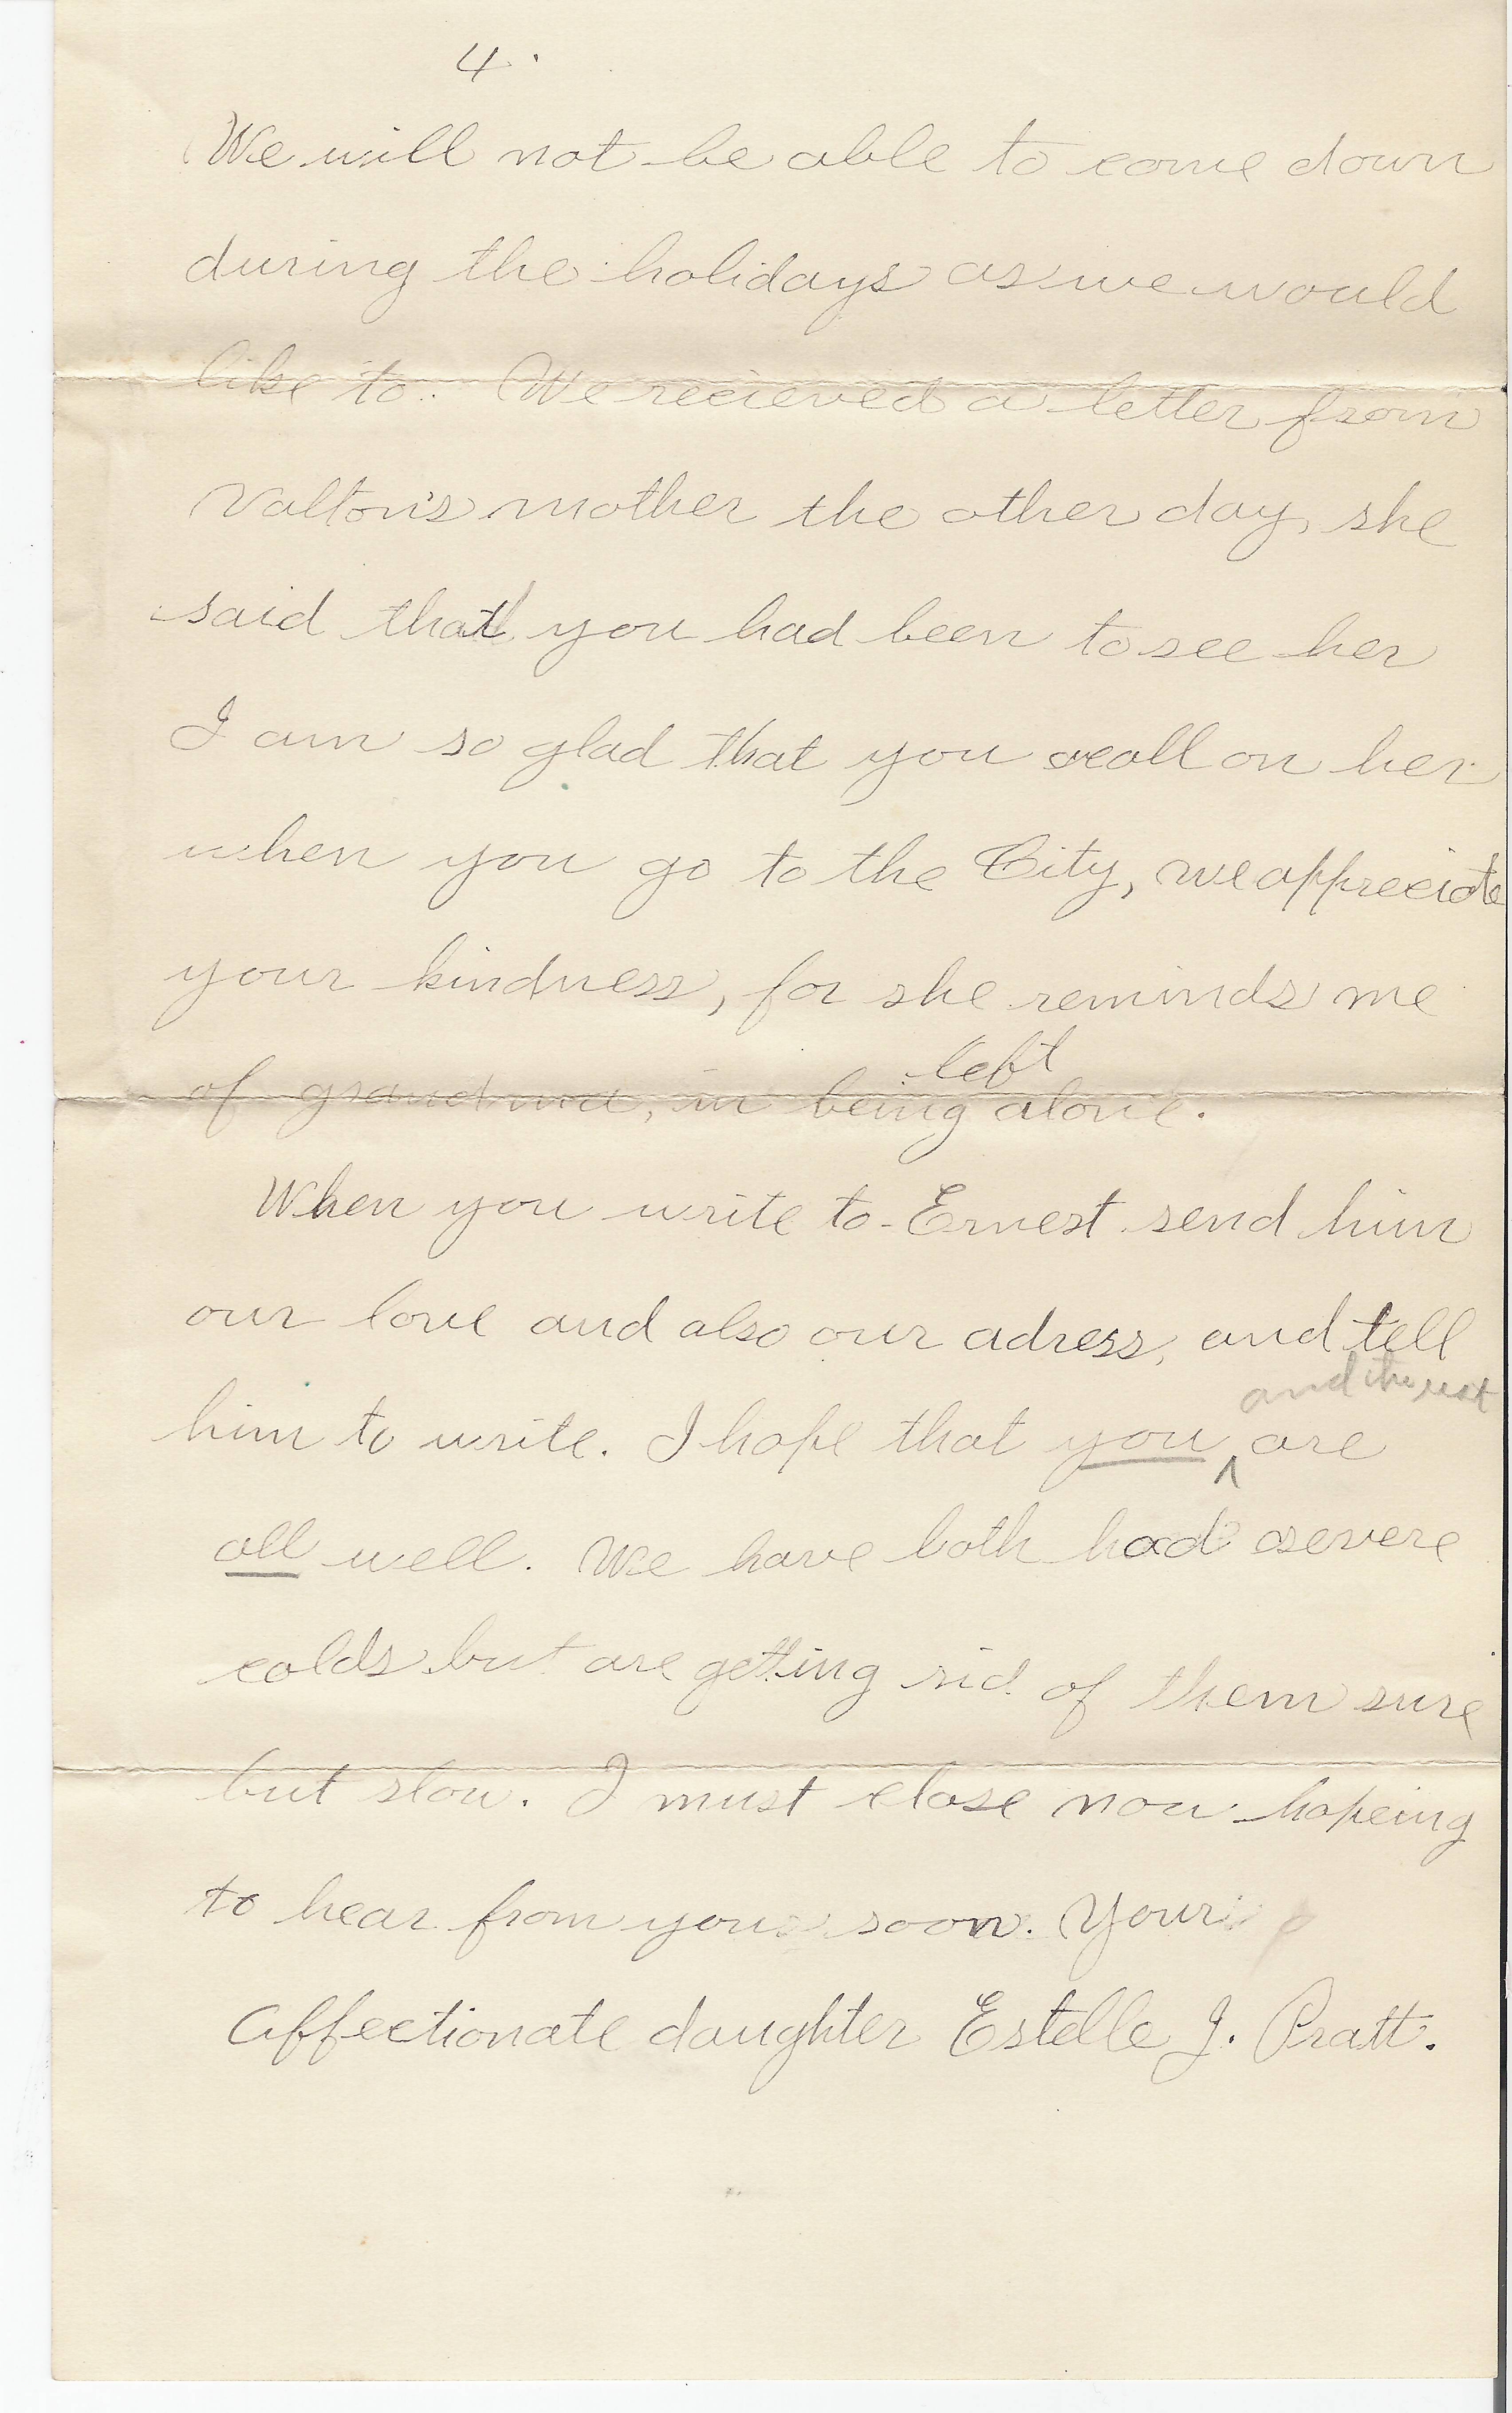 4.
We will not be able to come down
during the holidays as we would
like to. We recieved a letter from
Valton's mother the other day, she
said that you had been to see her
I am so glad that you call on her
when you go to the City, we appreciate
your kindness, for she reminds me
left
of grandma, in being alone.
When you write to Ernest send him
our love and also our adress, and tell
and the rest
him to write. I hope that you ^ are
all well. We have both had severe
colds but are getting rid of them sure
but slow. I must close now hopeing
to hear from you soon. Your
affectionate daughter Estelle J. Pratt.